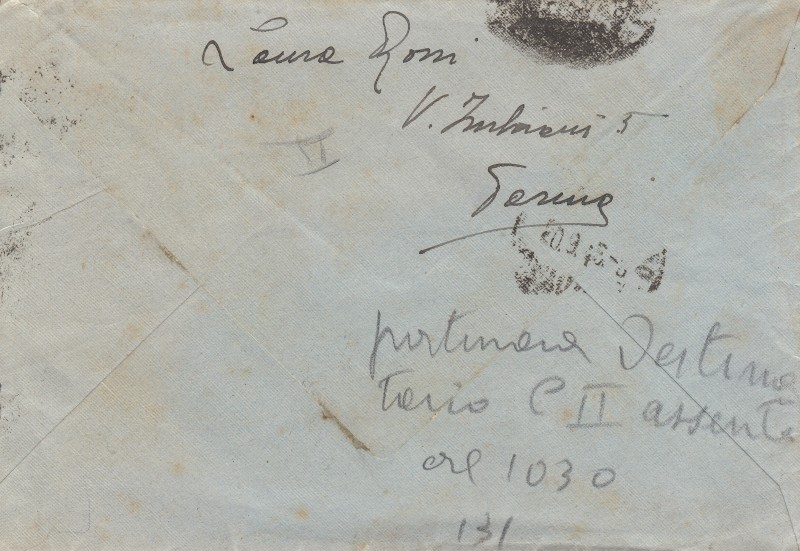 Laura Rossi
V. Imbriani 5
II
20.9.45
portinaia Destina
tario C II assente
ore 1030
131